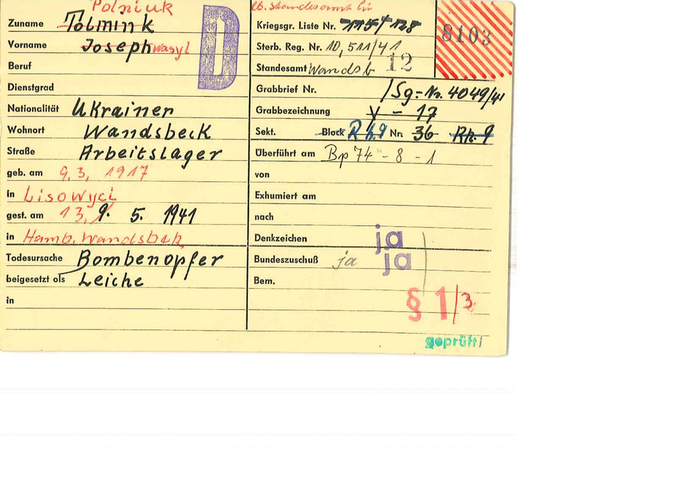 Polniuk
Zuname Tolmink
Vorname Joseph Wasyl
Beruf
Dienstgrad
Nationalität Ukrainer
Wohnort Wandsbeck
Straße Arbeitslager
geb. am 9, 3, 1917
in Lisowyci
gest. am 13, 9. 5. 1941
in Hamb. Wandsbek
Todesursache Bombenopfer
beigesetzt als Leiche
in
D
lt. Standesamt
Kriegsgr. Liste Nr. 128
8103
Sterb. Reg. Nr. 10, 511/41
Standesamt Wandsb 12
Grabbrief Nr. /Sg.-Nr. 4049/41
Grabbezeichnung V - 17
Sekt. Block R h.9 Nr. 36 Rh. 9
Überführt am Bp 74 - 8 - 1
von
Exhumiert am
nach
Denkzeichen ja
Bundeszuschuß ja ja
Bem.
§ 1/3
geprüft!